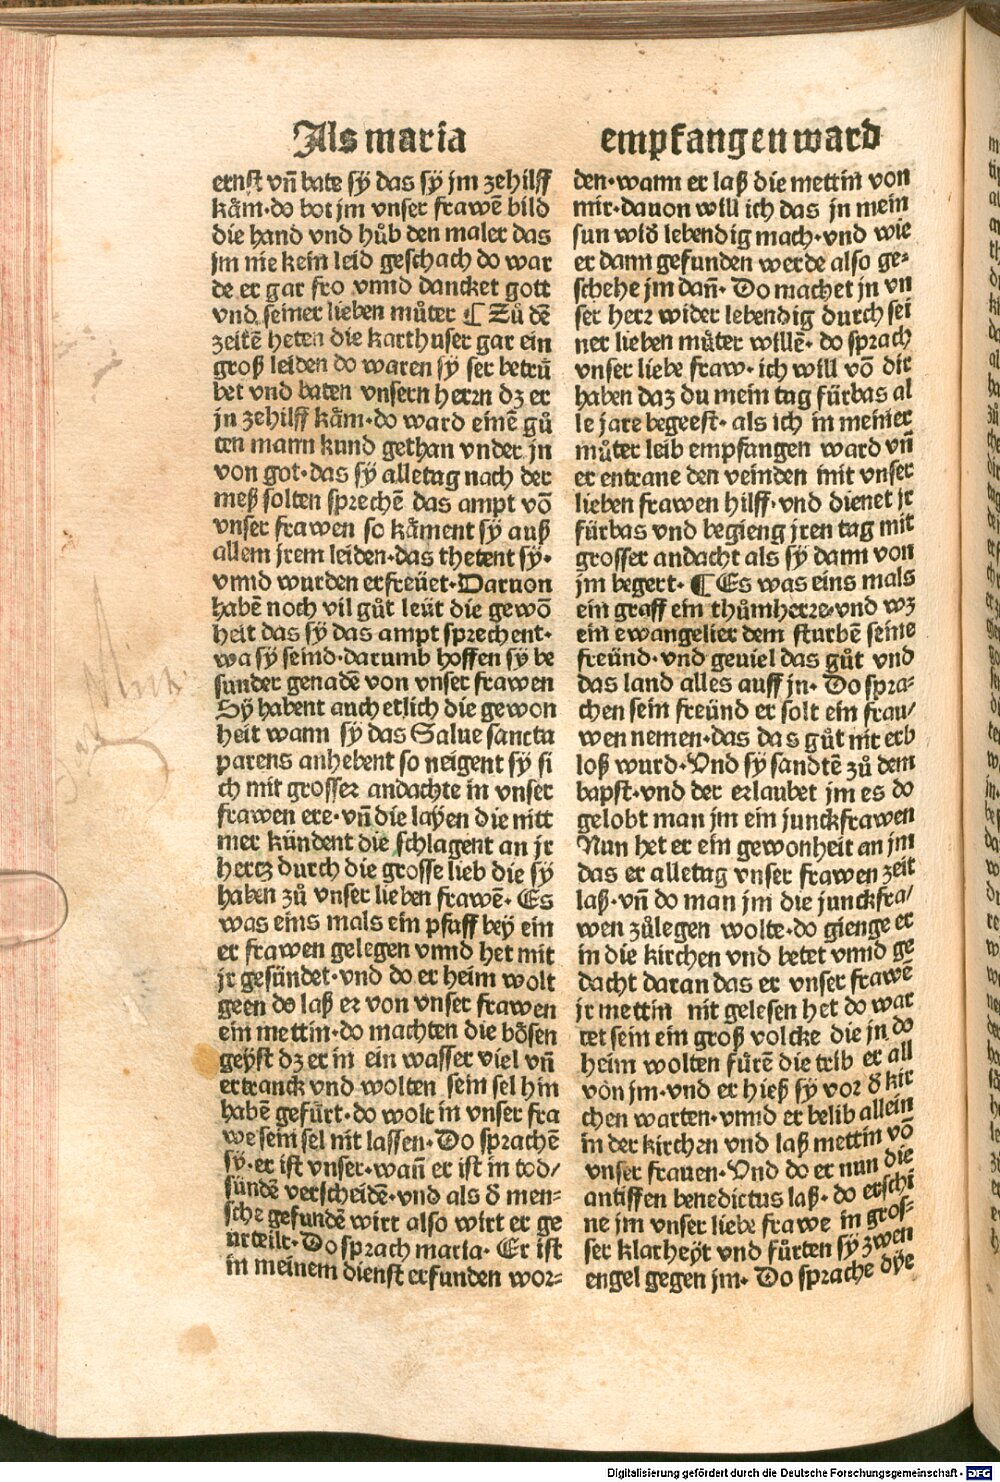 Als maria
ernst vn̄ bate sÿ das sÿ jm zehilff
kåm·do bot jm vnser frawē bild
die hand vnd hůb den maler das
jm nie kein leid geschach do war
de er gar fro vnnd dancket gott
vnd seiner lieben můter ¶ Zů dē
zeitē heten die karthuser gar ein
groß leiden do waren sÿ ser betrü
bet vnd baten vnsern herrn dz er
jn zehilff kåm·do ward einē gů
ten mann kund gethan vnder jn
von got·das sÿ alletag nach der
meß solten sprechē das ampt vō
vnser frawen so kåment sÿ auß
allem jrem leiden·das thetent sÿ·
vnnd wurden erfreüet·Daruon
habē noch vil gůt leüt die gewō
heit das sÿ das ampt sprechent·
wa sÿ seind·darumb hoffen sÿ be
sunder genadē von vnser frawen
Sÿ habent auch etlich die gewon
heit wann sÿ das Salue sancta
parens anhebent so neigent sÿ si
ch mit grosser andachte in vnser
frawen ere·vn̄ die laÿen die nitt
mer kündent die schlagent an jr
hertz durch die grosse lieb die sÿ
haben zů vnser lieben frawē· Es
was eins mals ein pfaff beÿ ein
er frawen gelegen vnnd het mit
jr gesündet·vnd do er heim wolt
geen do laß er von vnser frawen
ein mettin·do machten die bösen
geÿst dz er in ein wasser viel vn̄
ertranck vnd wolten sein sel hin
habē gefürt·do wolt in vnser fra
we sein sel nit lassen·Do sprachē
sÿ·er ist vnser·wan̄ er ist in tod/
sündē verscheidē·vnd als d̄ men⸗
sche gefundē wirt also wirt er ge
urteilt·Do sprach maria· Er ist
in meinem dienst erfunden wor⸗
empfangen ward
den·wann er laß die mettin von
mir·dauon will ich das jn mein
sun wid̄ lebendig mach·vnd wie
er dann gefunden werde also ge⸗
schehe jm dan̄· Do machet jn vn
ser herr wider lebendig durch sei
ner lieben můter willē· do sprach
vnser liebe fraw·ich will vō dir
haben daz du mein tag fürbas al
le jare begeest· als ich in meiner
můter leib empfangen ward vn̄
er entrane den veinden mit vnser
lieben frawen hilff·vnd dienet jr
fürbas vnd begieng jren tag mit
grosser andacht als sÿ dann von
jm begert· ¶ Es was eins mals
ein graff ein thůmherre·vnd wz
ein ewangelier dem sturbē seine
freünd·vnd geuiel das gůt vnd
das land alles auff jn· Do spra⸗
chen sein freünd er solt ein frau/
wen nemen·das das gůt nit erb
loß wurd·Vnd sÿ sandtē zů dem
bapst·vnd der erlaubet jm es do
gelobt man jm ein junckfrawen
Nun het er ein gewonheit an jm
das er alletag vnser frawen zeit
laß·vn̄ do man jm die junckfra/
wen zůlegen wolte·do gienge er
in die kirchen vnd betet vnnd ge
dacht daran das er vnser frawē
jr mettin nit gelesen het do war
tet sein ein groß volcke die jn do
heim wolten fürē die trib er all
von jm·vnd er hieß sÿ vor d̄ kir
chen warten·vnnd er belib allein
in der kirchen vnd laß mettin vō
vnser frauen·Vnd do er nun die
antiffen benedictus laß· do erschi
ne jm vnser liebe frawe in gros⸗
ser klarheÿt vnd fürten sÿ zwen
engel gegen jm· Do sprache dÿe
Digitalisierung gefördert durch die Deutsche Forschungsgemeinschaft - DFG